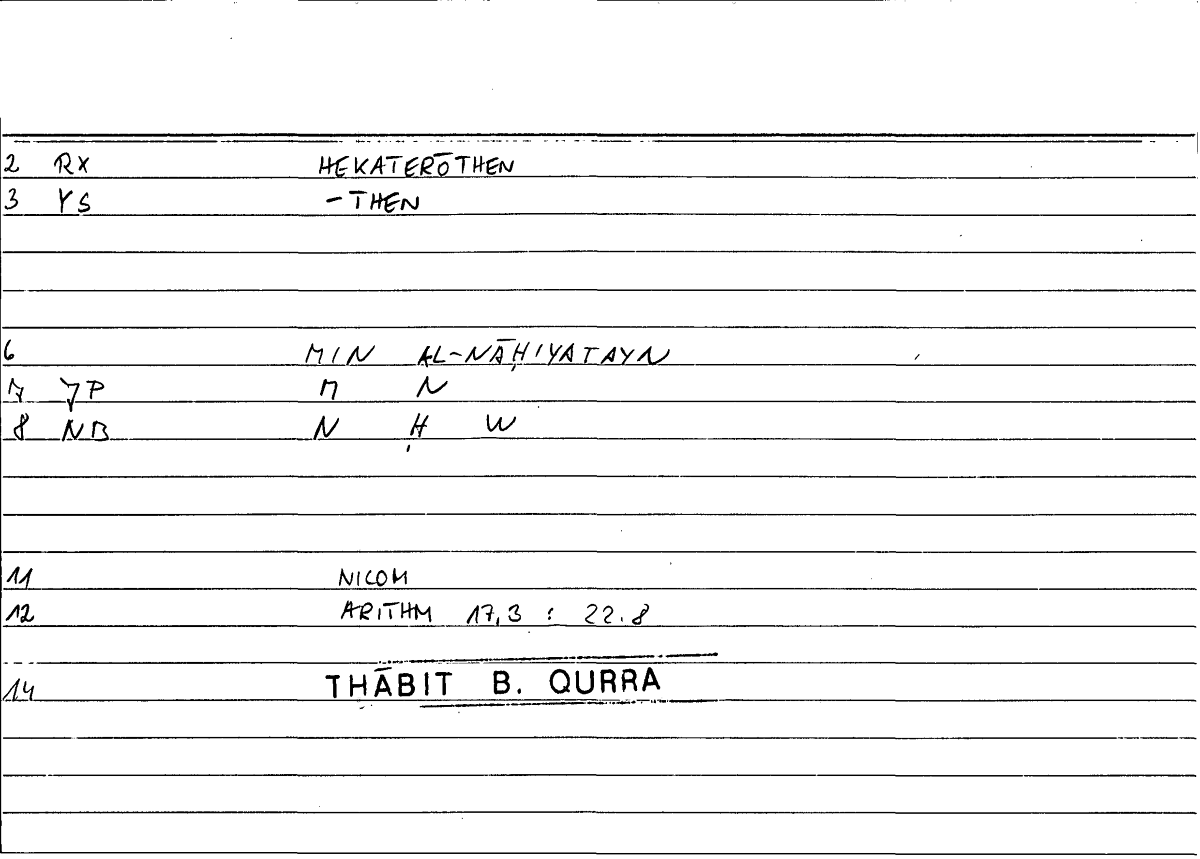 2 RX HEKATERŌTHEN
3 YS -THEN
6 MIN AL-NĀḤIYATAYN
7 JP M N
8 NB N Ḥ W
11 NICOM
12 ARITHM 17,3 : 22.8
14 THĀBIT B. QURRA